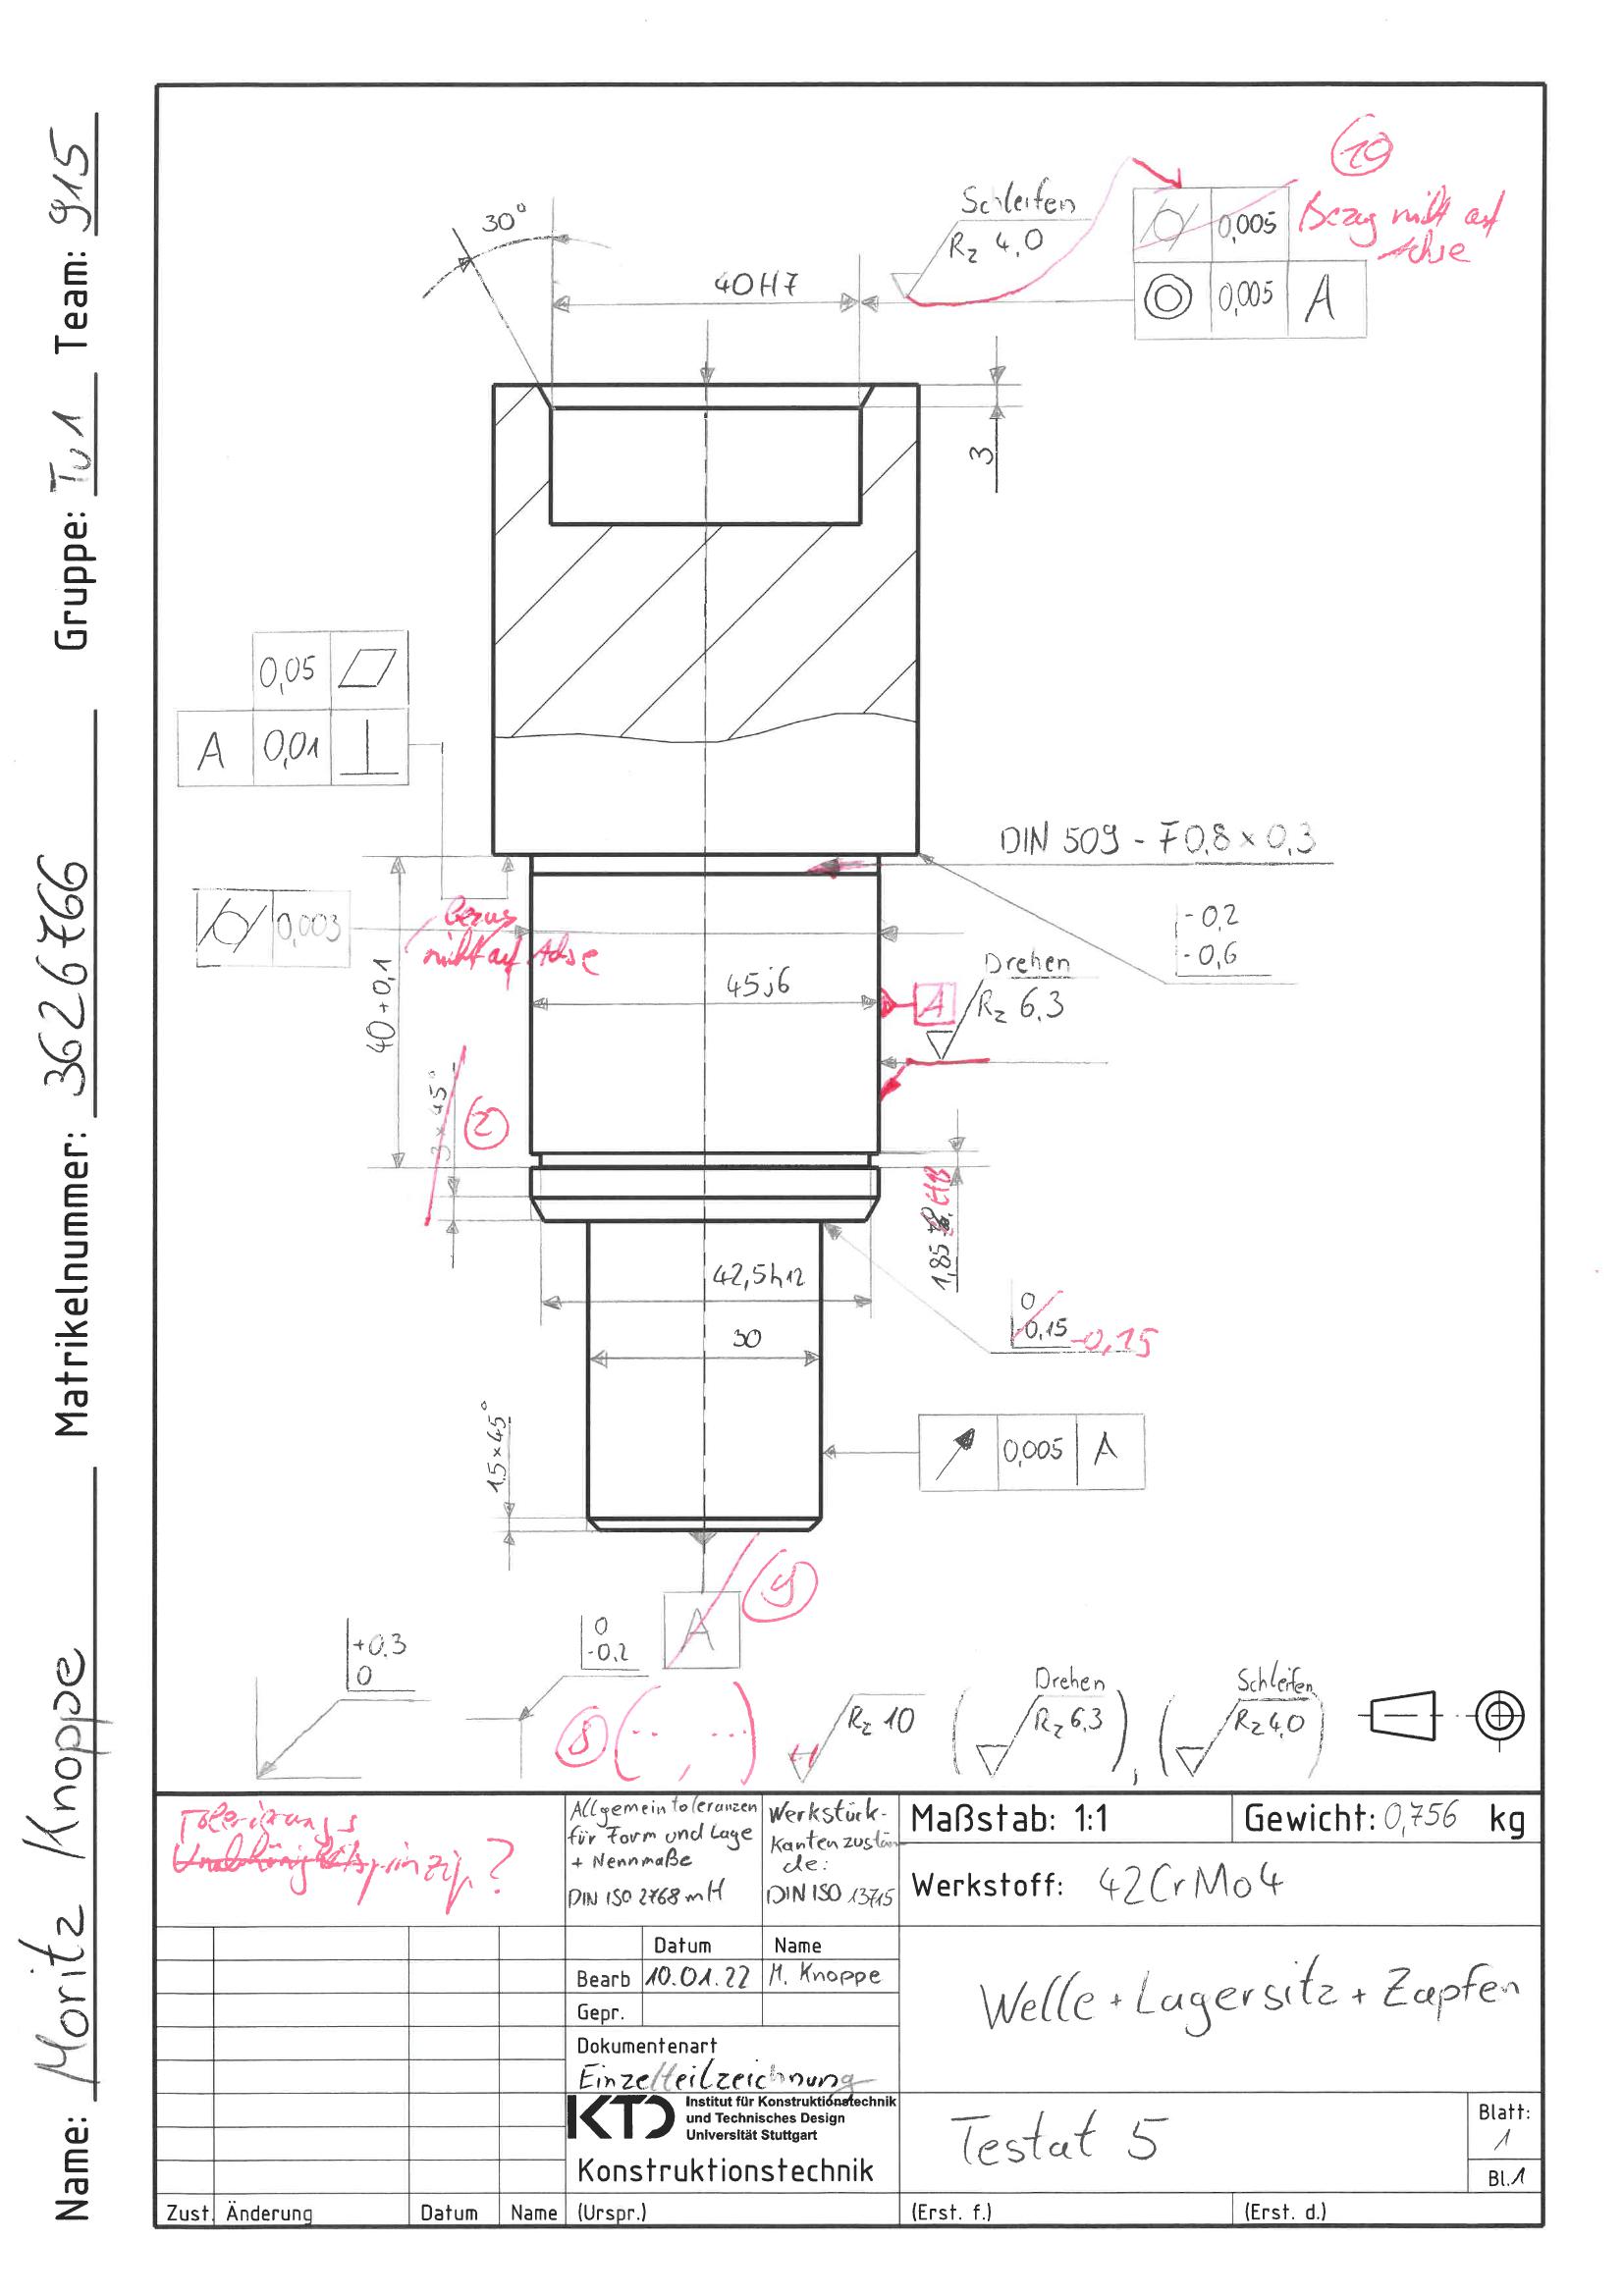 Name: Moritz Knoppe Matrikelnummer: 3626766 Gruppe: Tu 1 Team: 915
10
Schleifen
Rz 4,0
0,005
Bezug nicht auf
Achse
0,005 A
30°
40H7
3
0,05
A 0,01
DIN 509 - F 0,8 × 0,3
-0,2
-0,6
0,003
Bezug
nicht auf Achse
40+0,1
45j6
A
Drehen
Rz 6,3
3×45°
2
1,85
42,5h12
0
-0,15
-0,15
30
1,5×45°
0,005 A
A
9
+0,3
0
0
-0,2
8
( , )
Rz 10
(Drehen
Rz 6,3),
(Schleifen
Rz 4,0)
Tolerierungs
prinzip?
Allgemeintoleranzen
für Form und Lage
+ Nennmaße
DIN ISO 2768 mH
Werkstück-
kantenzustän
de:
DIN ISO 13715
Maßstab: 1:1
Gewicht: 0,756 kg
Werkstoff: 42CrMo4
Datum Name
Bearb 10.01.22 M. Knoppe
Gepr.
Welle + Lagersitz + Zapfen
Dokumentenart
Einzelteilzeichnung
KTD
Institut für Konstruktionstechnik
und Technisches Design
Universität Stuttgart
Konstruktionstechnik
Testat 5
Blatt:
1
Bl.1
Zust. Änderung Datum Name (Urspr.) (Erst. f.) (Erst. d.)